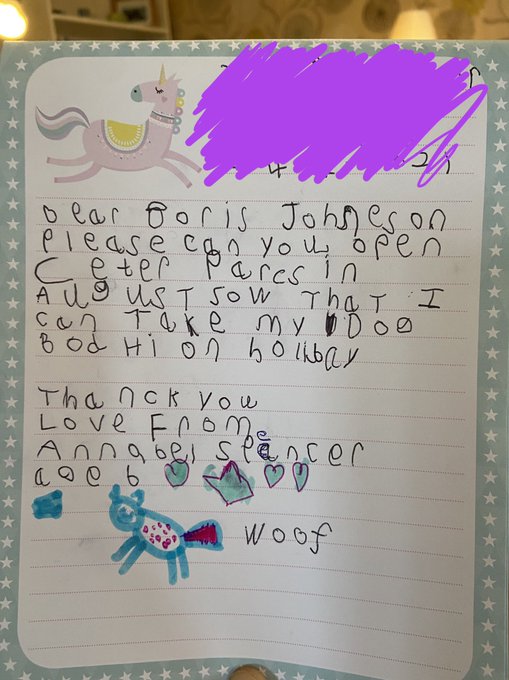 Dear Boris Johneson
please can you open
Ceter Parcs in
August sow that I
can Take my Dog
Bodhi on holiday
Thanck you
Love From
Annabel Speancer
age 6
Woof